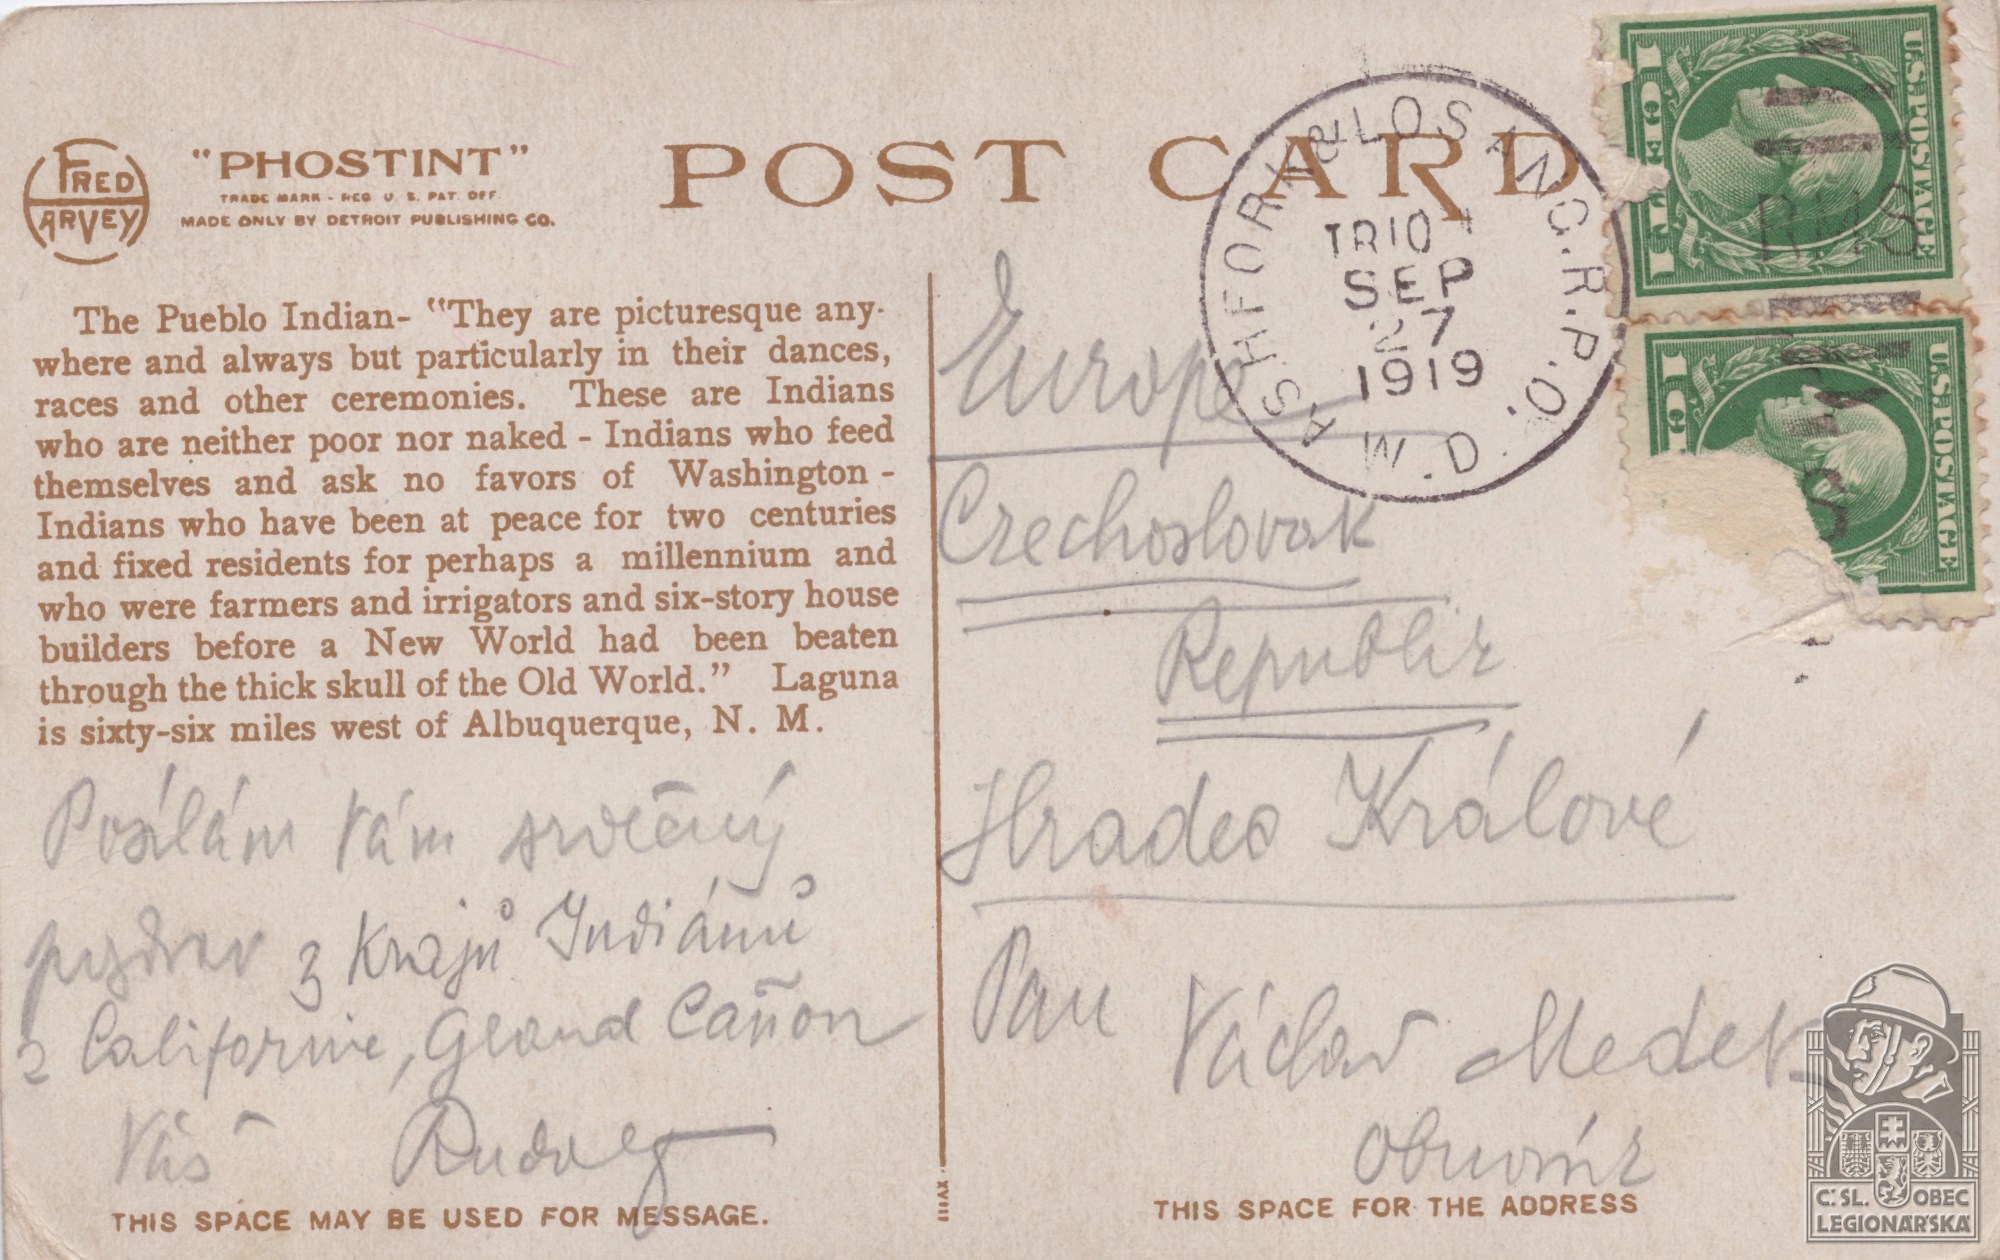 FRED HARVEY
"PHOSTINT"
TRADE MARK - REG U. S. PAT. OFF.
MADE ONLY BY DETROIT PUBLISHING CO.
POST CARD
The Pueblo Indian- "They are picturesque any-
where and always but particularly in their dances,
races and other ceremonies. These are Indians
who are neither poor nor naked - Indians who feed
themselves and ask no favors of Washington -
Indians who have been at peace for two centuries
and fixed residents for perhaps a millennium and
who were farmers and irrigators and six-story house
builders before a New World had been beaten
through the thick skull of the Old World." Laguna
is sixty-six miles west of Albuquerque, N. M.
Posílám Vám srdečný
pozdrav z krajů Indiánů
z Californie, Grand Cañon
Váš Rudolf
THIS SPACE MAY BE USED FOR MESSAGE.
XVIII
ASHFORK & LOS ANG. R.P.O.
TR10
SEP
27
1919
M.D.
1 CENT 1
U.S. POSTAGE
RMS
U.S. POSTAGE
S
Europe
Czechoslovak
Republik
Hradec Králové
Pan Václav Medek
obuvník
THIS SPACE FOR THE ADDRESS
Č. SL. OBEC
LEGIONÁŘSKÁ